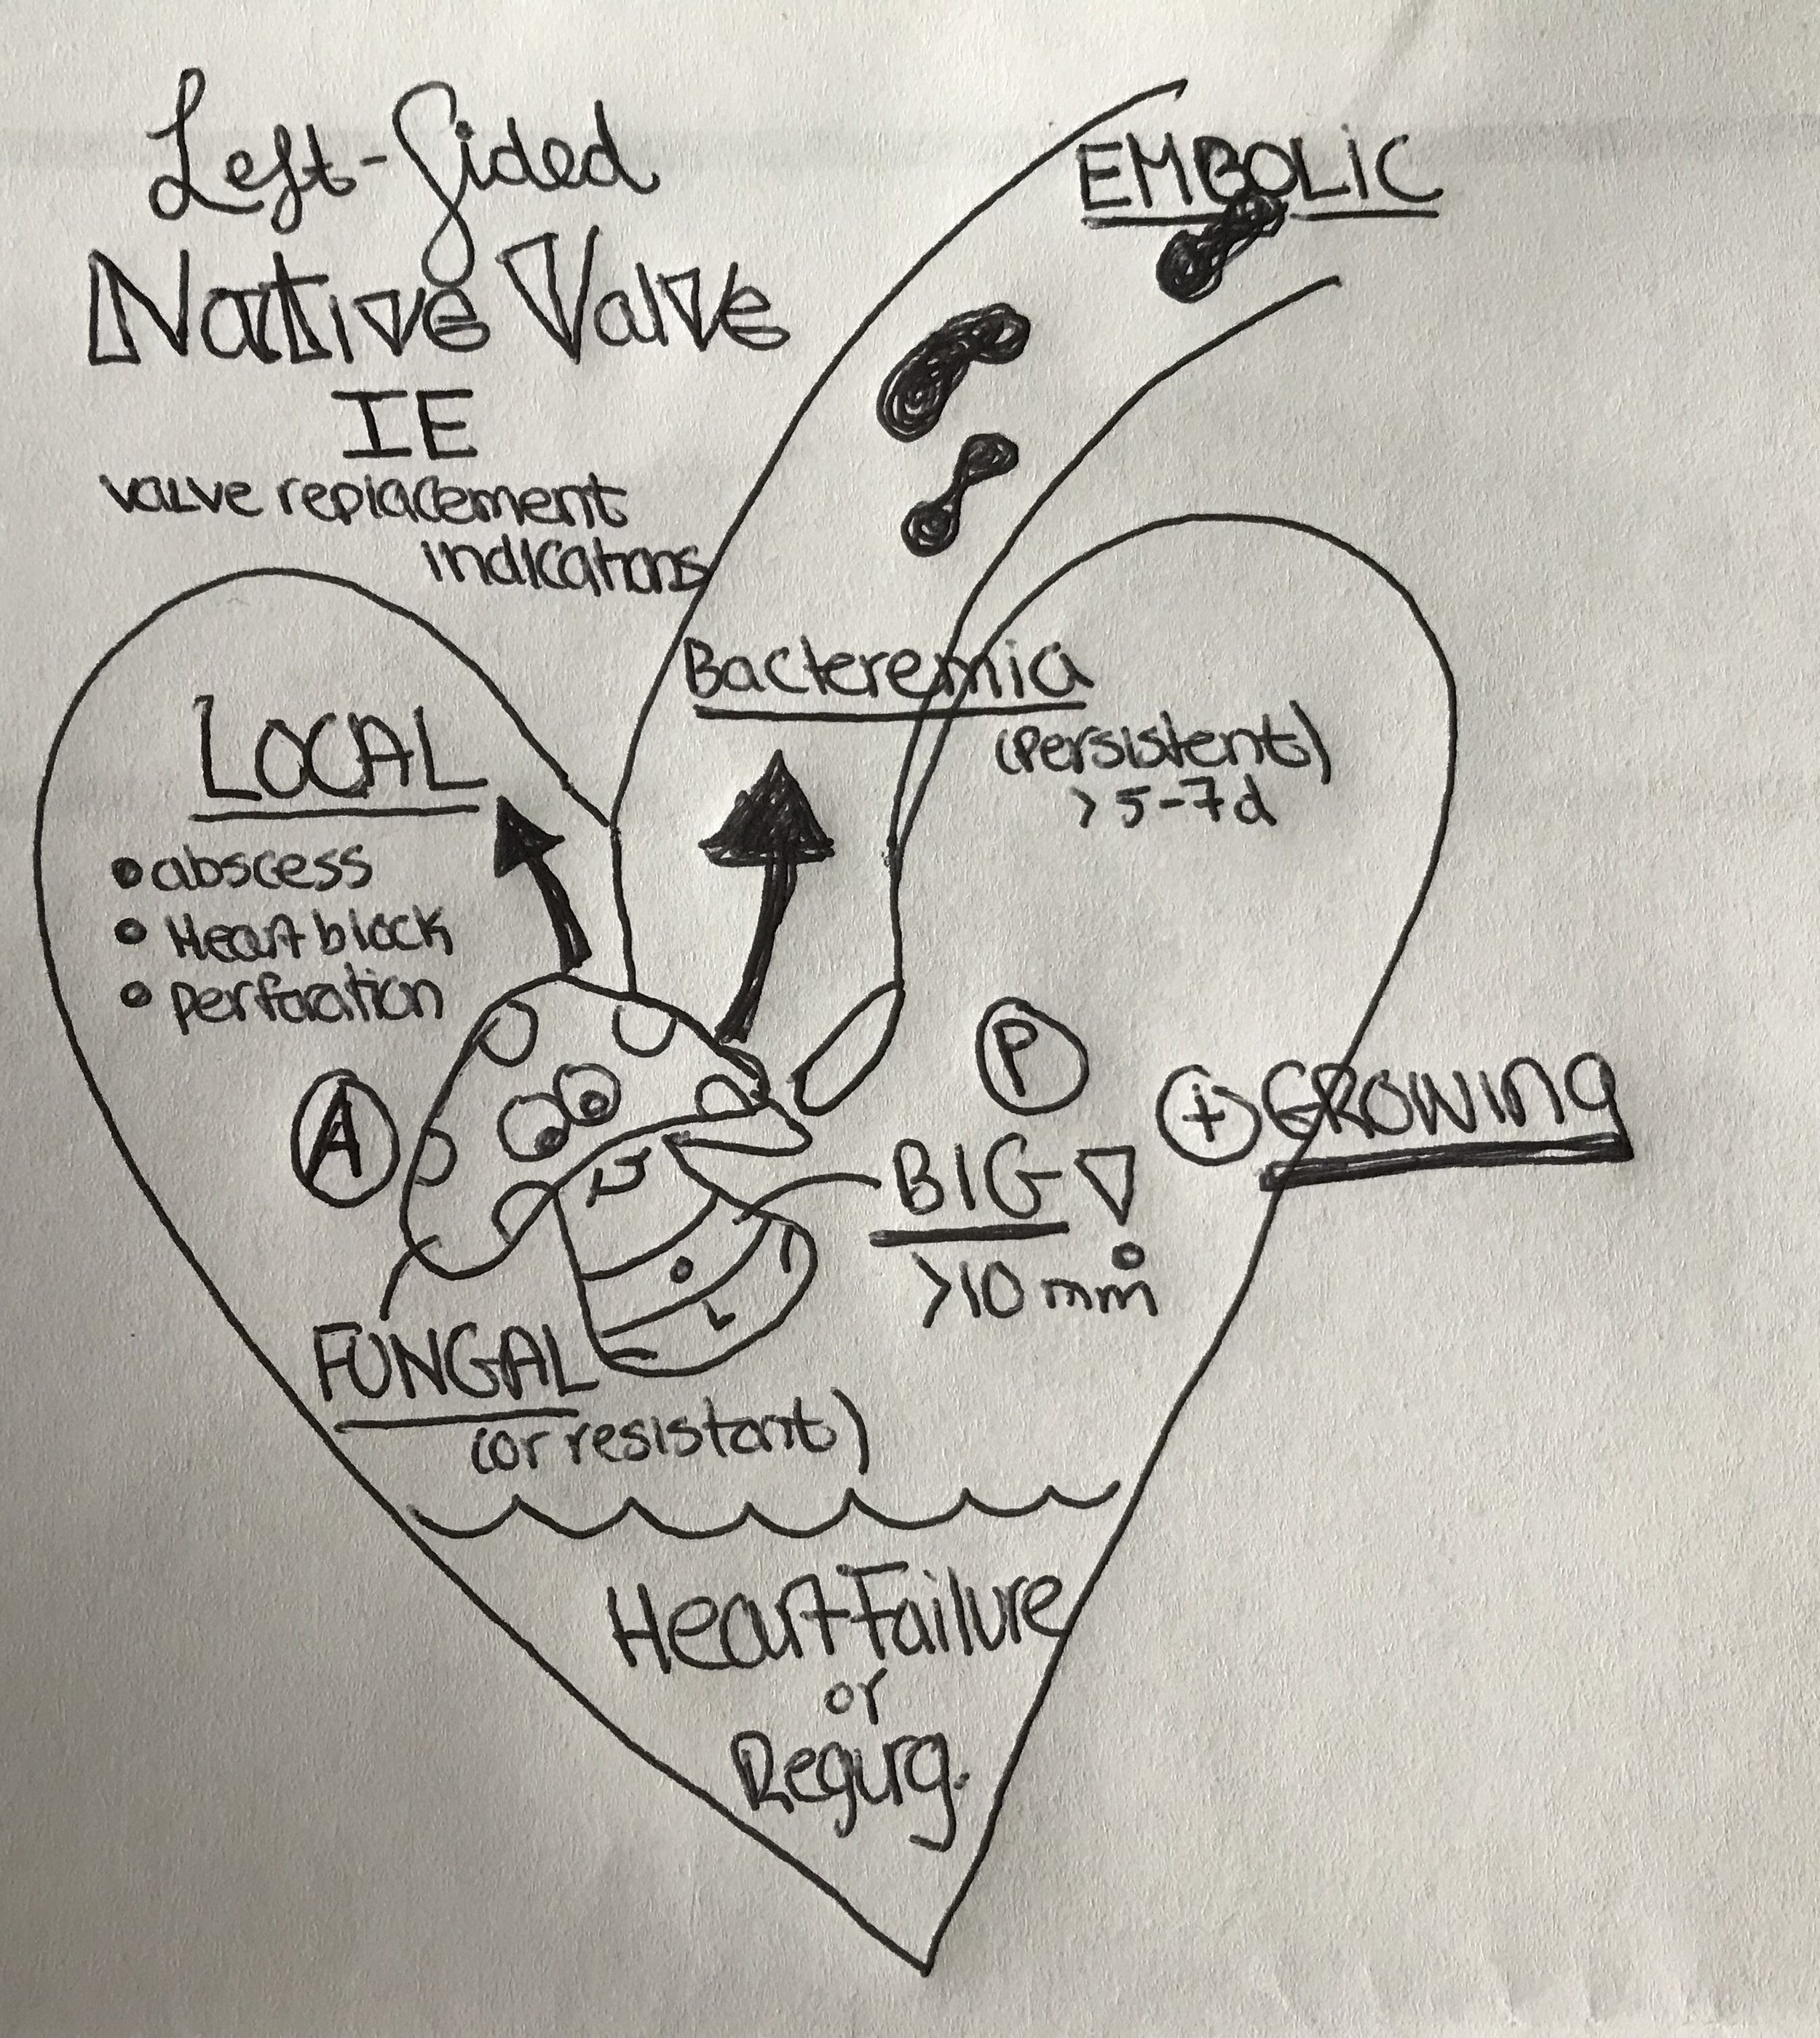 Left-Sided
Native Valve
IE
valve replacement
indications
EMBOLIC
Bacteremia
(Persistent)
>5-7d
LOCAL
• abscess
• Heart block
• perforation
A
P
+ GROWING
BIG!
>10 mm
FUNGAL
(or resistant)
Heart Failure
or
Regurg.